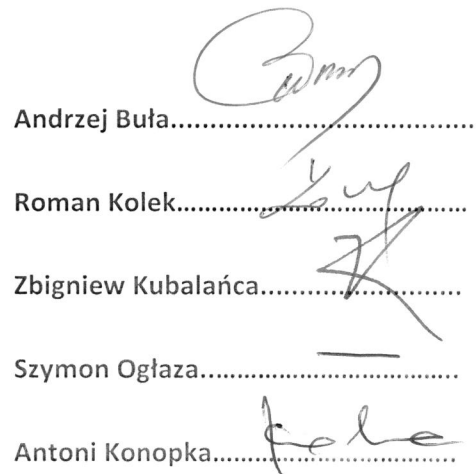 Andrzej Buła...................................
Roman Kolek..................................
Zbigniew Kubalańca.......................
Szymon Ogłaza..............................
Antoni Konopka............................